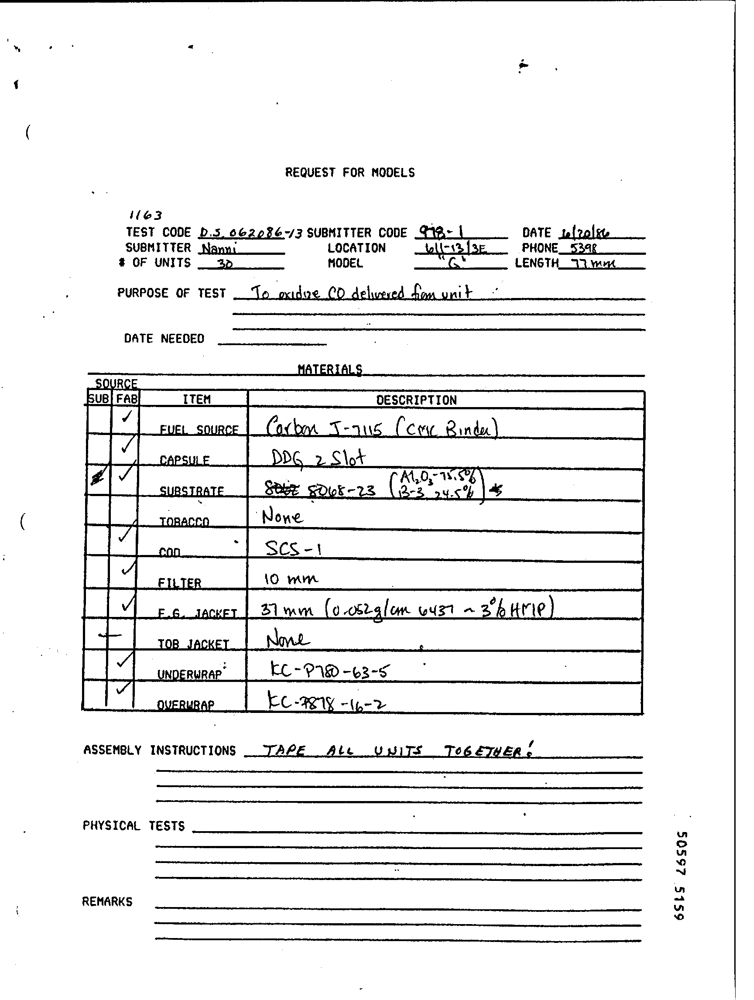 REQUEST FOR MODELS
1163
TEST CODE D.S. 062086-13 SUBMITTER CODE 978-1 DATE 6/20/86
SUBMITTER Nanni LOCATION 611-13/3E PHONE 5398
# OF UNITS 30 MODEL "G" LENGTH 77 mm
PURPOSE OF TEST To oxidize CO delivered from unit
DATE NEEDED
MATERIALS
SOURCE
SUB FAB ITEM DESCRIPTION
✓ FUEL SOURCE Carbon J-7115 (CMC Binder)
✓ CAPSULE DDG 2 Slot
✓ SUBSTRATE 8068-23 (Al2O3-75.5% B-3 24.5%)
TOBACCO None
✓ COD SCS-1
✓ FILTER 10 mm
✓ F.G. JACKET 37 mm (0.052g/cm 6437 ~ 3% HMP)
TOB JACKET None
✓ UNDERWRAP KC-P780-63-5
✓ OVERWRAP KC-7878-16-2
ASSEMBLY INSTRUCTIONS TAPE ALL UNITS TOGETHER!
PHYSICAL TESTS
REMARKS
50597 5159